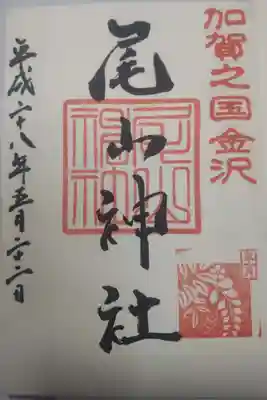 加賀之国金沢
尾山神社
平成二十八年五月二十二日